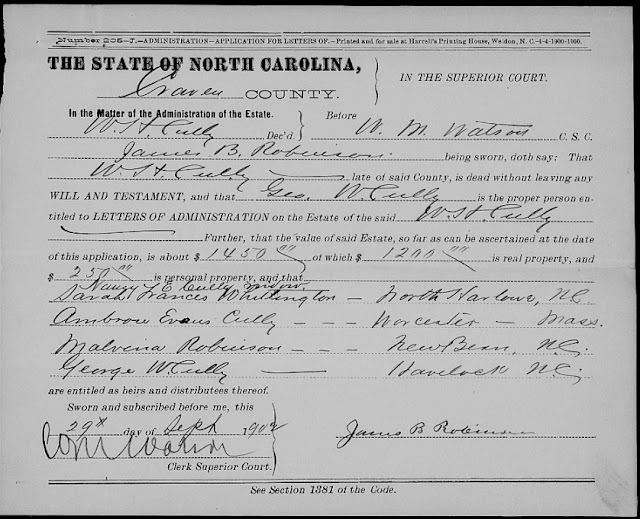 Number 205—J.—ADMINISTRATION—APPLICATION FOR LETTERS OF.—Printed and for sale at Harrell's Printing House, Weldon, N. C.-4-4-1900-1000.
THE STATE OF NORTH CAROLINA,
Craven COUNTY.
IN THE SUPERIOR COURT.
In the Matter of the Administration of the Estate.
Before
W. H. Cully Dec'd.
W. M. Watson C. S. C.
James B. Robinson being sworn, doth say: That
W. H. Cully late of said County, is dead without leaving any
WILL AND TESTAMENT, and that Geo. W. Cully is the proper person en-
titled to LETTERS OF ADMINISTRATION on the Estate of the said W. H. Cully
Further, that the value of said Estate, so far as can be ascertained at the date
of this application, is about $ 1450 00 of which $ 1200 00 is real property, and
$ 250 00 is personal property, and that
Nancy E Cully widow
Sarah Frances Whittington — North Harlowe, NC.
Ambrose Evans Cully - - - Worcester — Mass.
Malvena Robinson - - - New Bern, N.C.
George W Cully — Havelock N.C.
are entitled as heirs and distributees thereof.
Sworn and subscribed before me, this
29th day of Sept 1902
James B Robinson
W M Watson
Clerk Superior Court.
See Section 1381 of the Code.